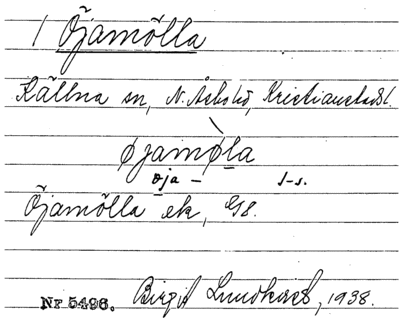 1 Öjamölla
Källna sn, N. Åsbohd, Kristianstadsl.
øjamø̀la
øja – s-s.
Öjamölla ek, GS.
Nr 5496. Birgit Lundkvist, 1938.